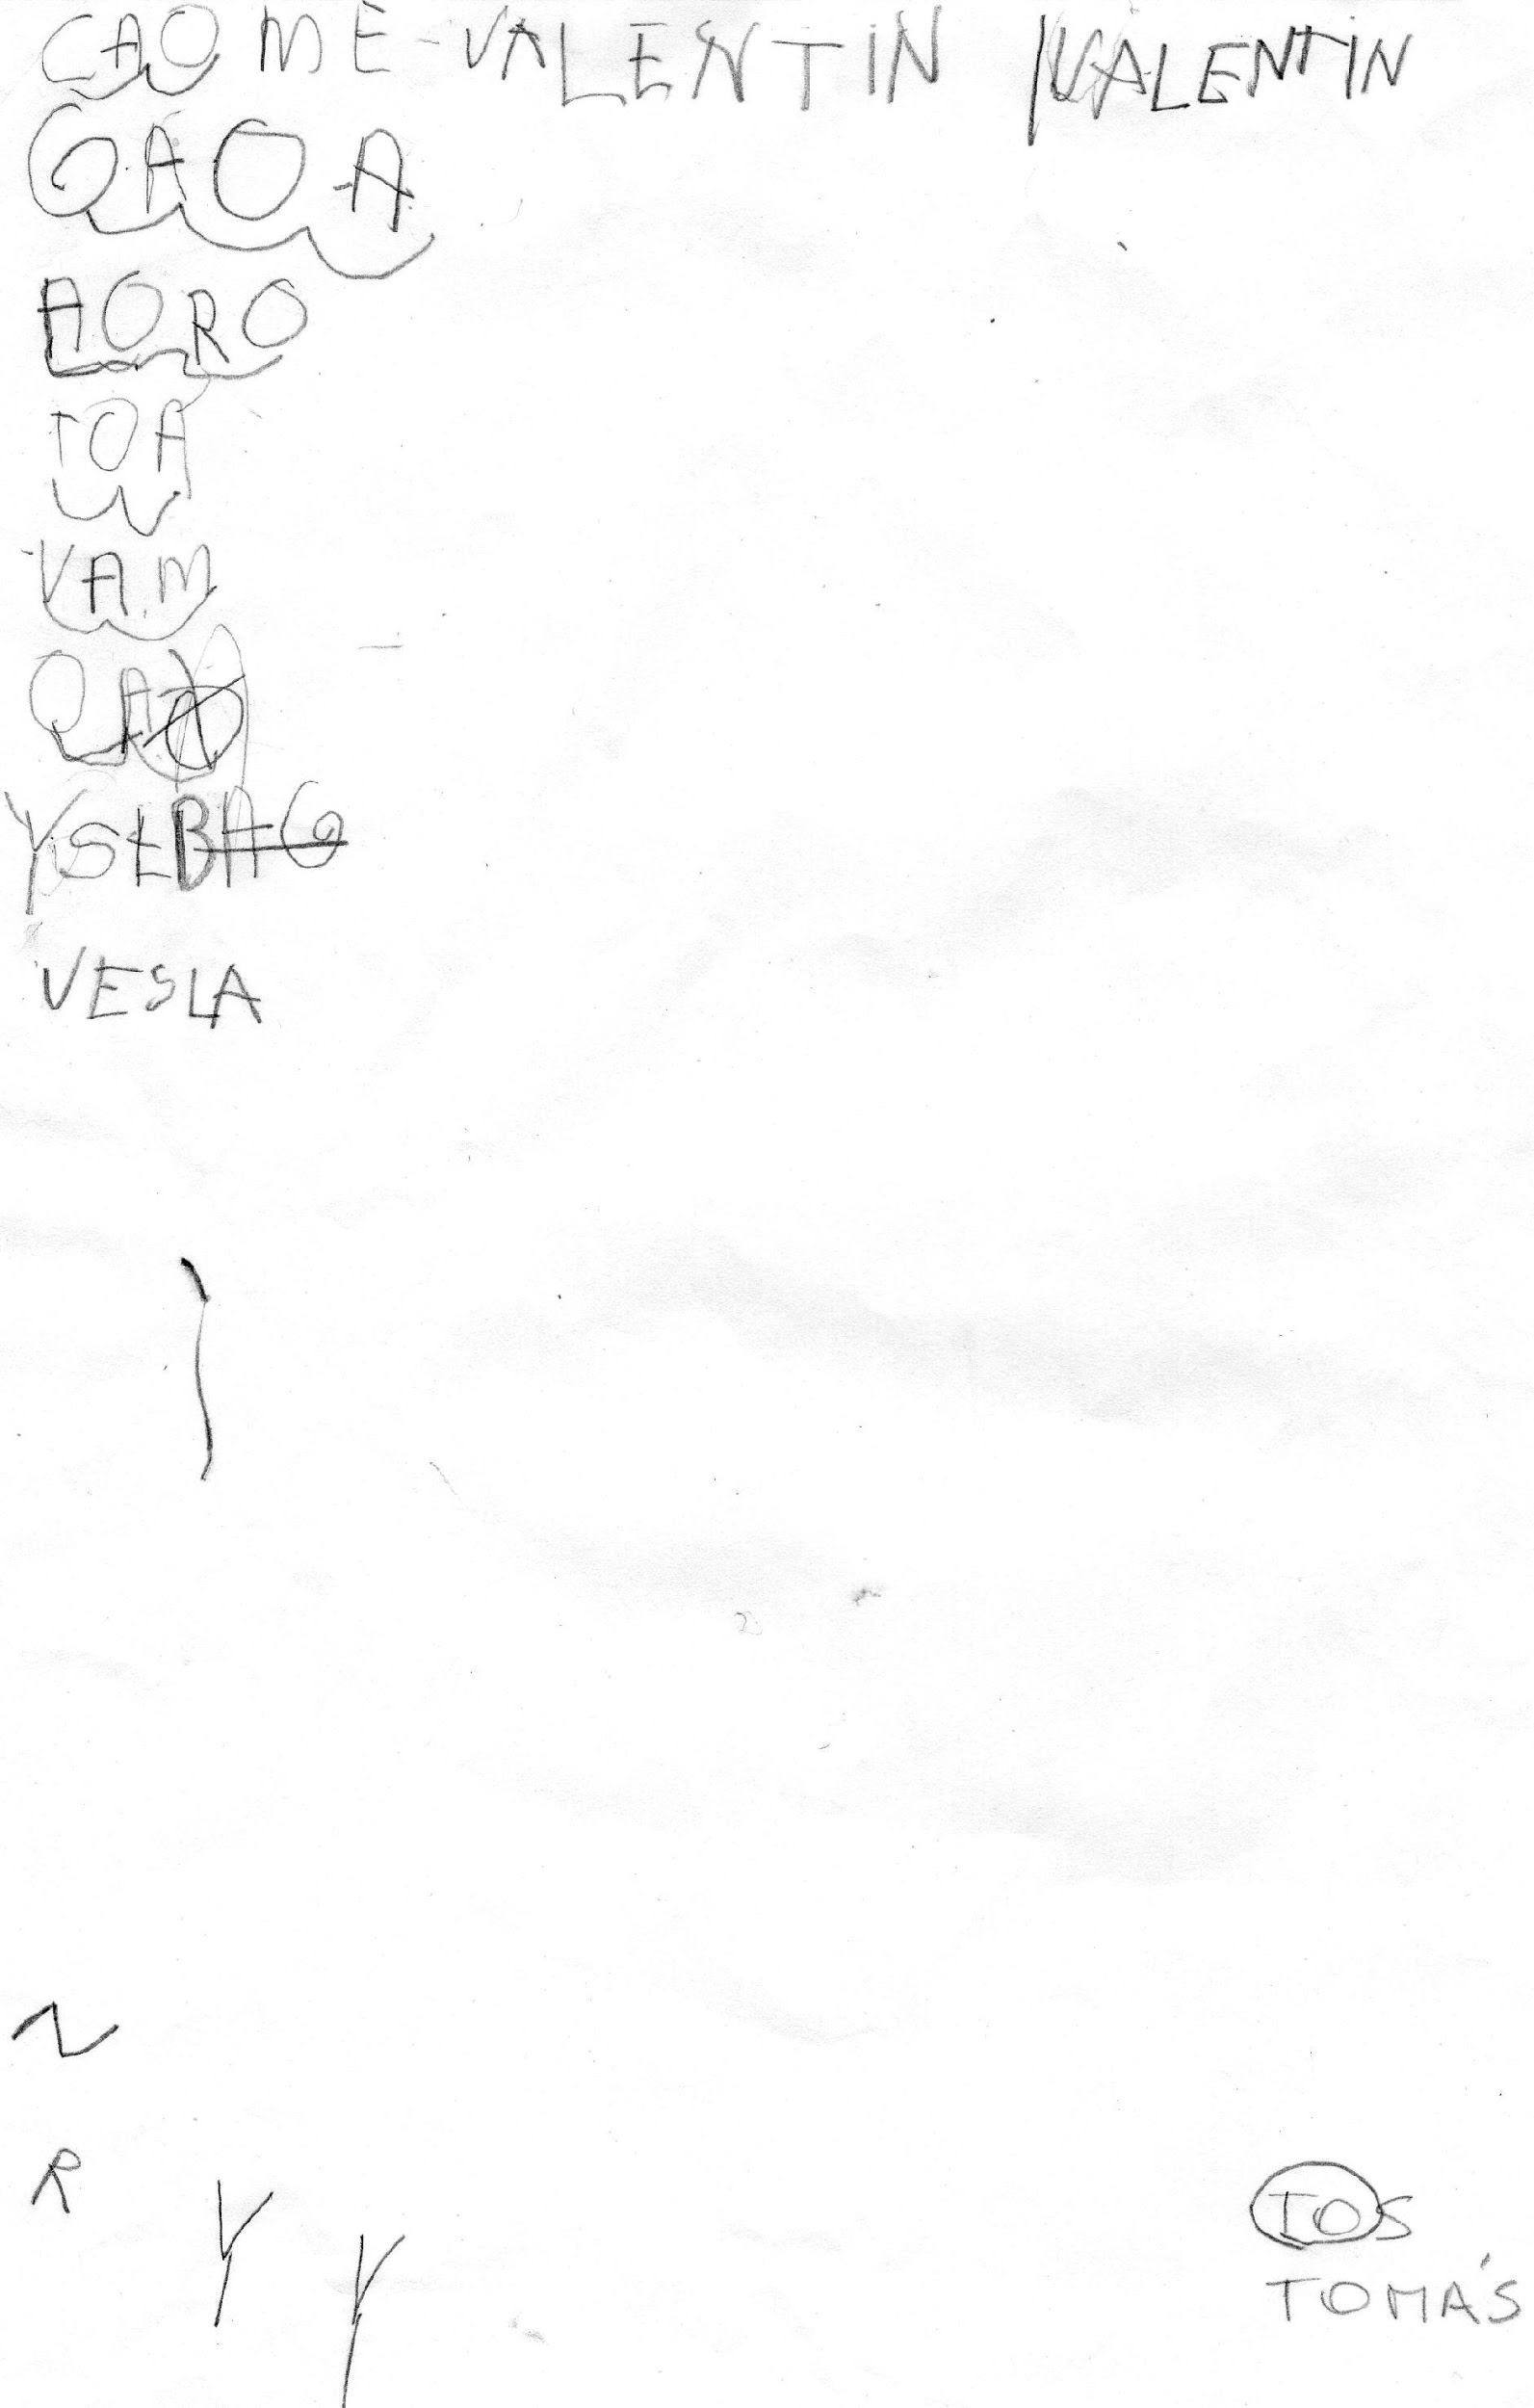 CAO ME-VALENTIN VALENTIN
GAOA
AORO
TOA
VAM
OA
YSEBAG
VESLA
N
R
Y Y
TOS
TOMÁS